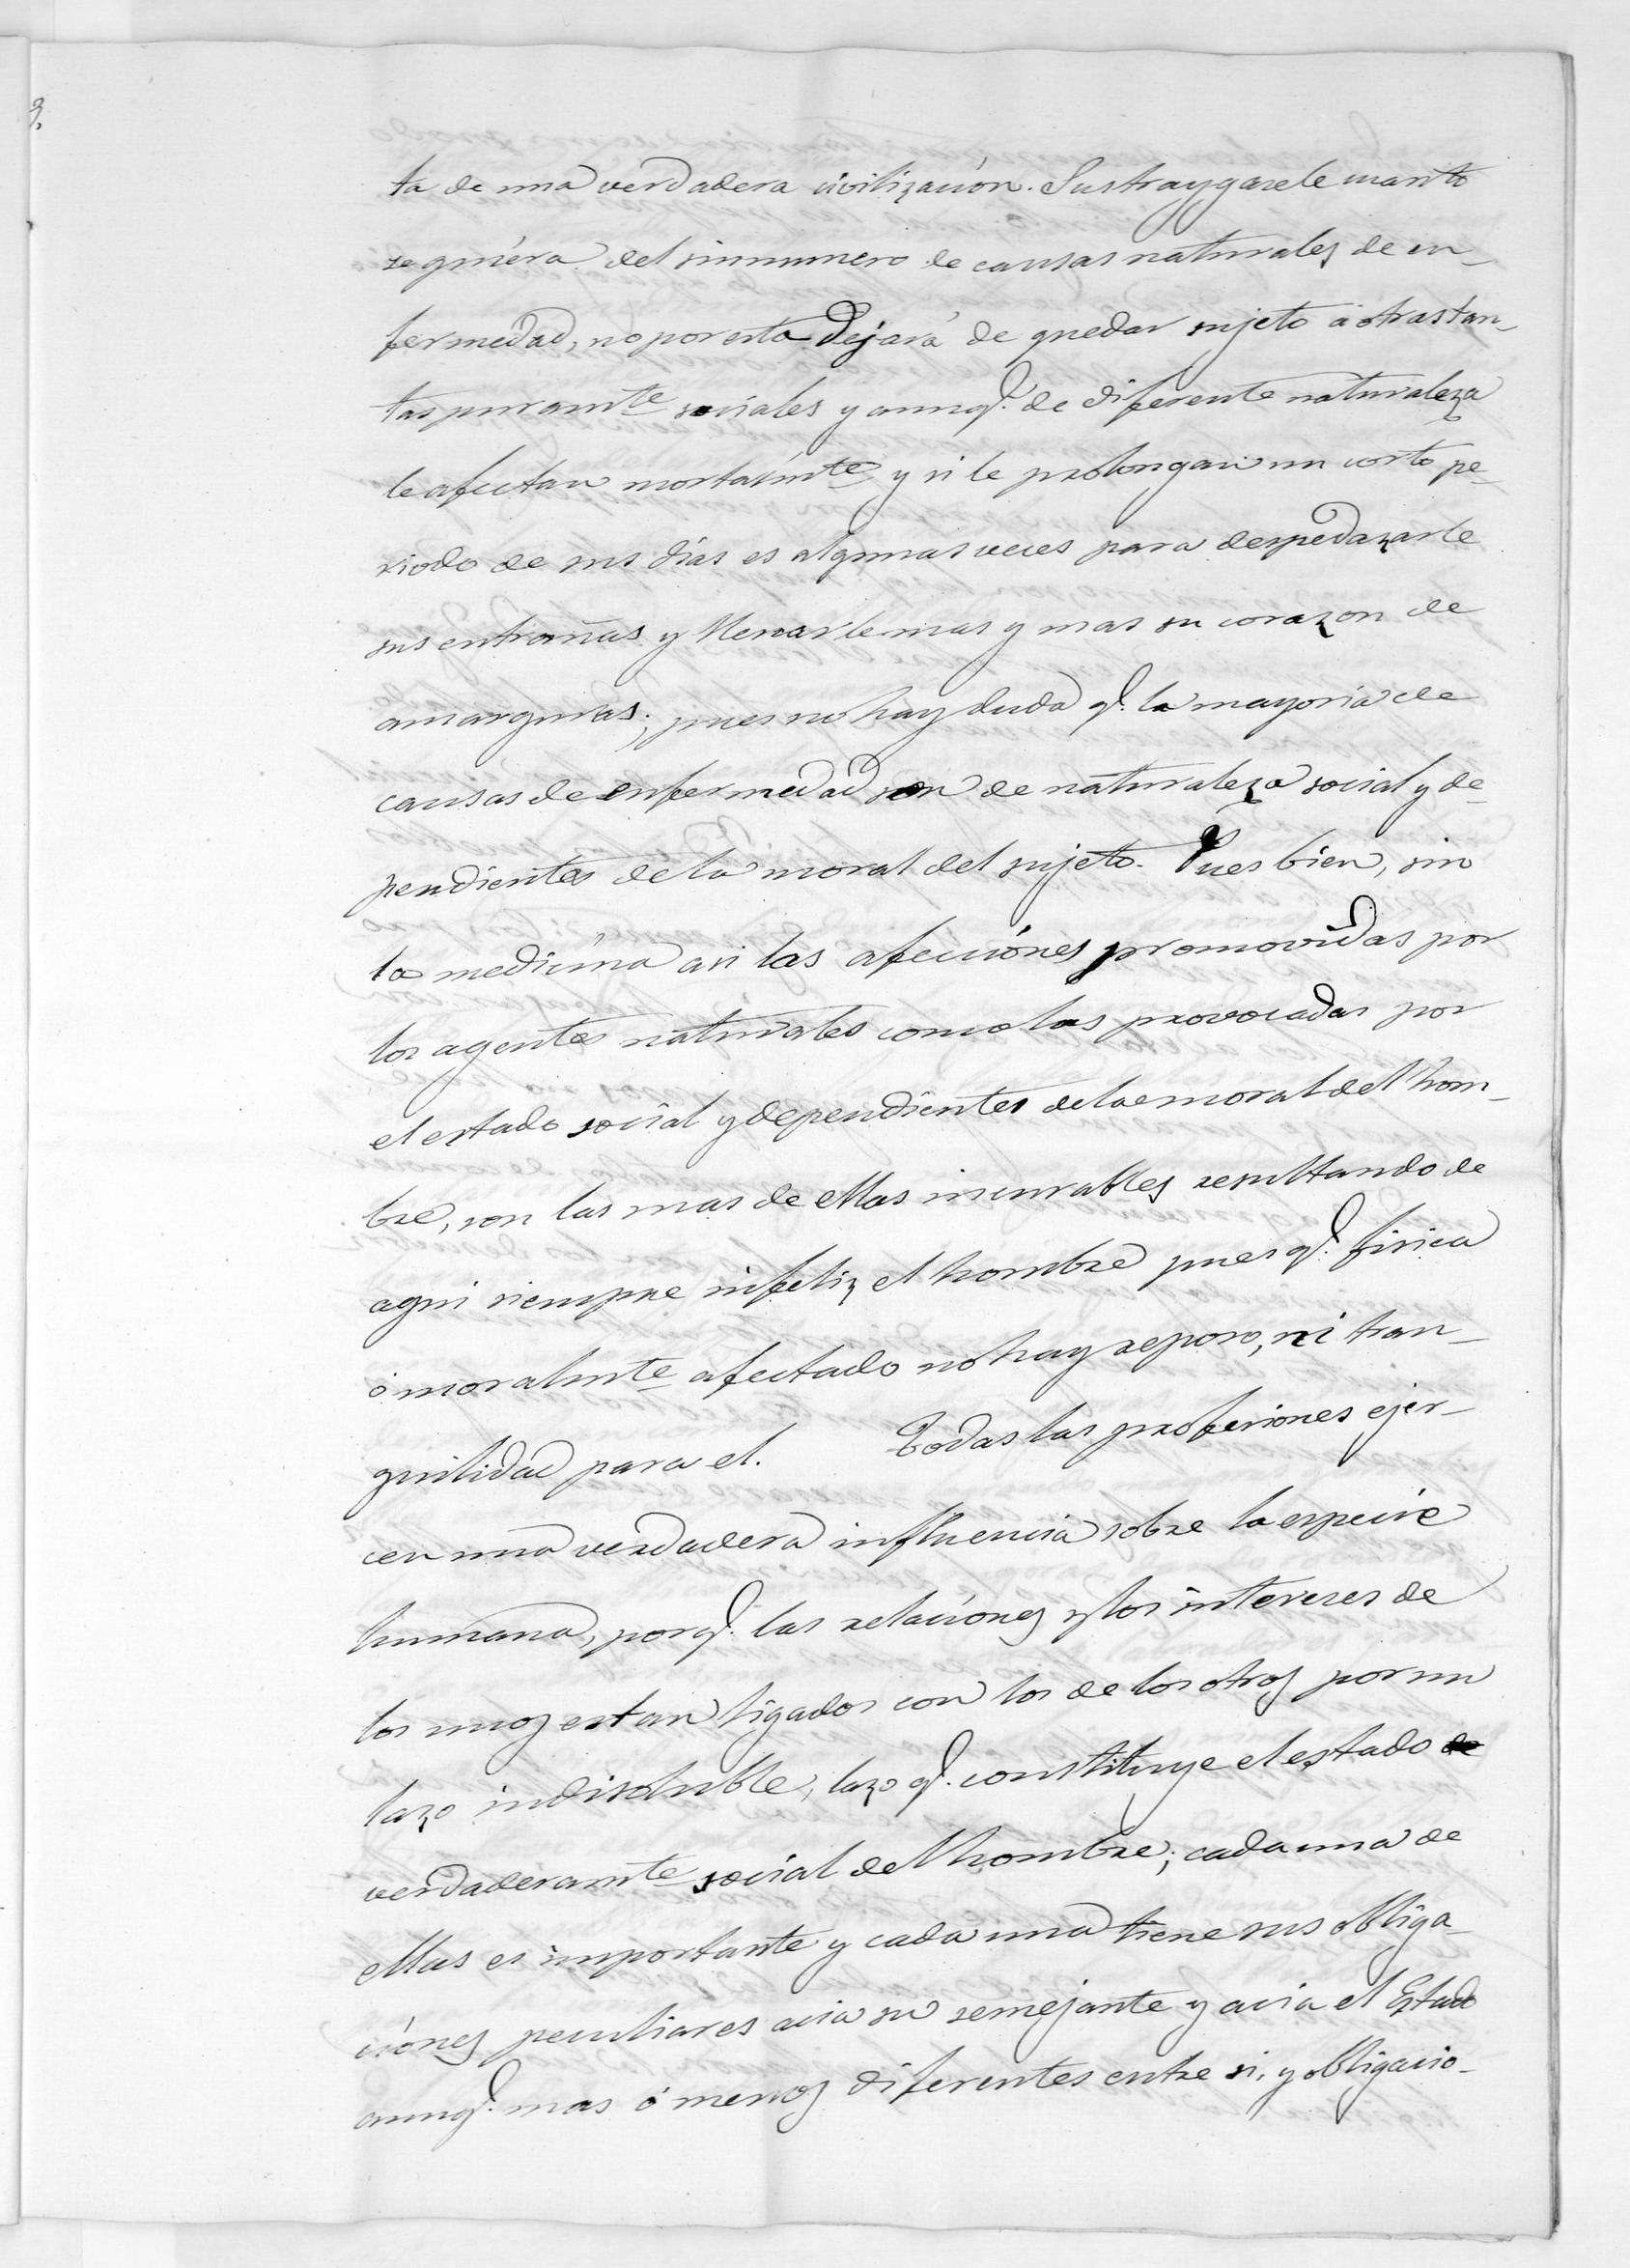 ta de una verdadera civilización. Sustraygasele cuanto
se quiéra del sinnumero de causas naturales de en_
fermedad, no por esto dejará de quedar sujeto á otras tan_
tas puramte sociales y aunq.e de diferente naturaleza
le afectan mortalmte y si le prolongan un corto pe_
riodo de sus dias es algunas veces para despedazarle
sus entrañas y llenarle mas y mas su corazon de
amarguras; pues no hay duda q.e la mayoria de
causas de enfermedad son de naturaleza social y de_
pendientes de la moral del sujeto. Pues bien, sin
la medicina asi las afecciónes promovidas por
los agentes naturales como las provocadas por
el estado social y dependientes de la moral del hom_
bre, son las mas de ellas incurables resultando de
aqui siempre infeliz el hombre pues q.e fisica
ó moralmte afectado no hay reposo, ni tran_
quilidad para el. Todas las profesiones ejer_
cen una verdadera influencia sobre la especie
humana, porq.e las relaciónes y los intereses de
los unos estan ligados con los de los otros por un
lazo indisoluble, lazo q.e constituye el estado de
verdaderamte social del hombre; cada una de
ellas es importante y cada una tiene sus obliga_
ciónes peculiares acia su semejante y acia el Estado
aunq.e mas ó menos diferentes entre si, y obligacio_